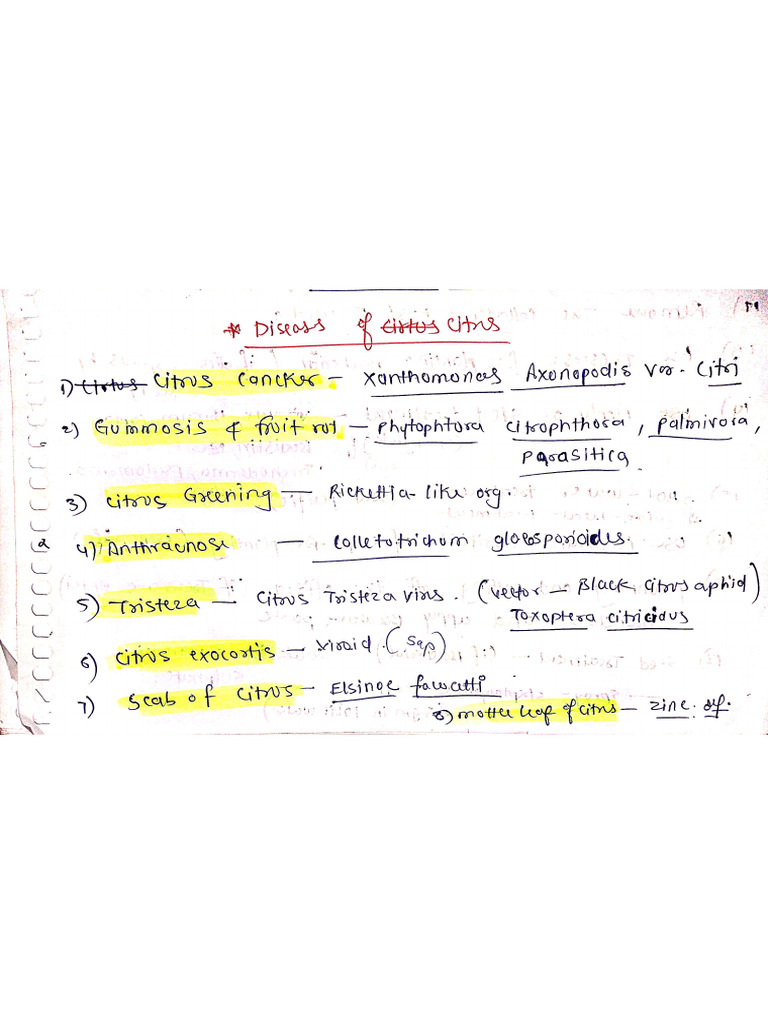 * Diseass of Cirtus Citrus
1) Cirtus Citrus Cancker - Xanthomonas Axonopodis Var. Citri
2) Gummosis & fruit rot - Phytophtora citrophthora, palmivora,
parasitica
3) Citrus Greening - Rickettia-like org.
4) Anthracnose - Colletotrichum gloeosporioides
5) Tristeza - Citrus Tristeza virus. (vector - Black citrus aphid)
Toxoptera citricidus
6) Citrus exocortis - viroid. (Sap)
7) Scab of Citrus - Elsinoe fawcetti
8) mottle leaf of citrus - zinc. def.